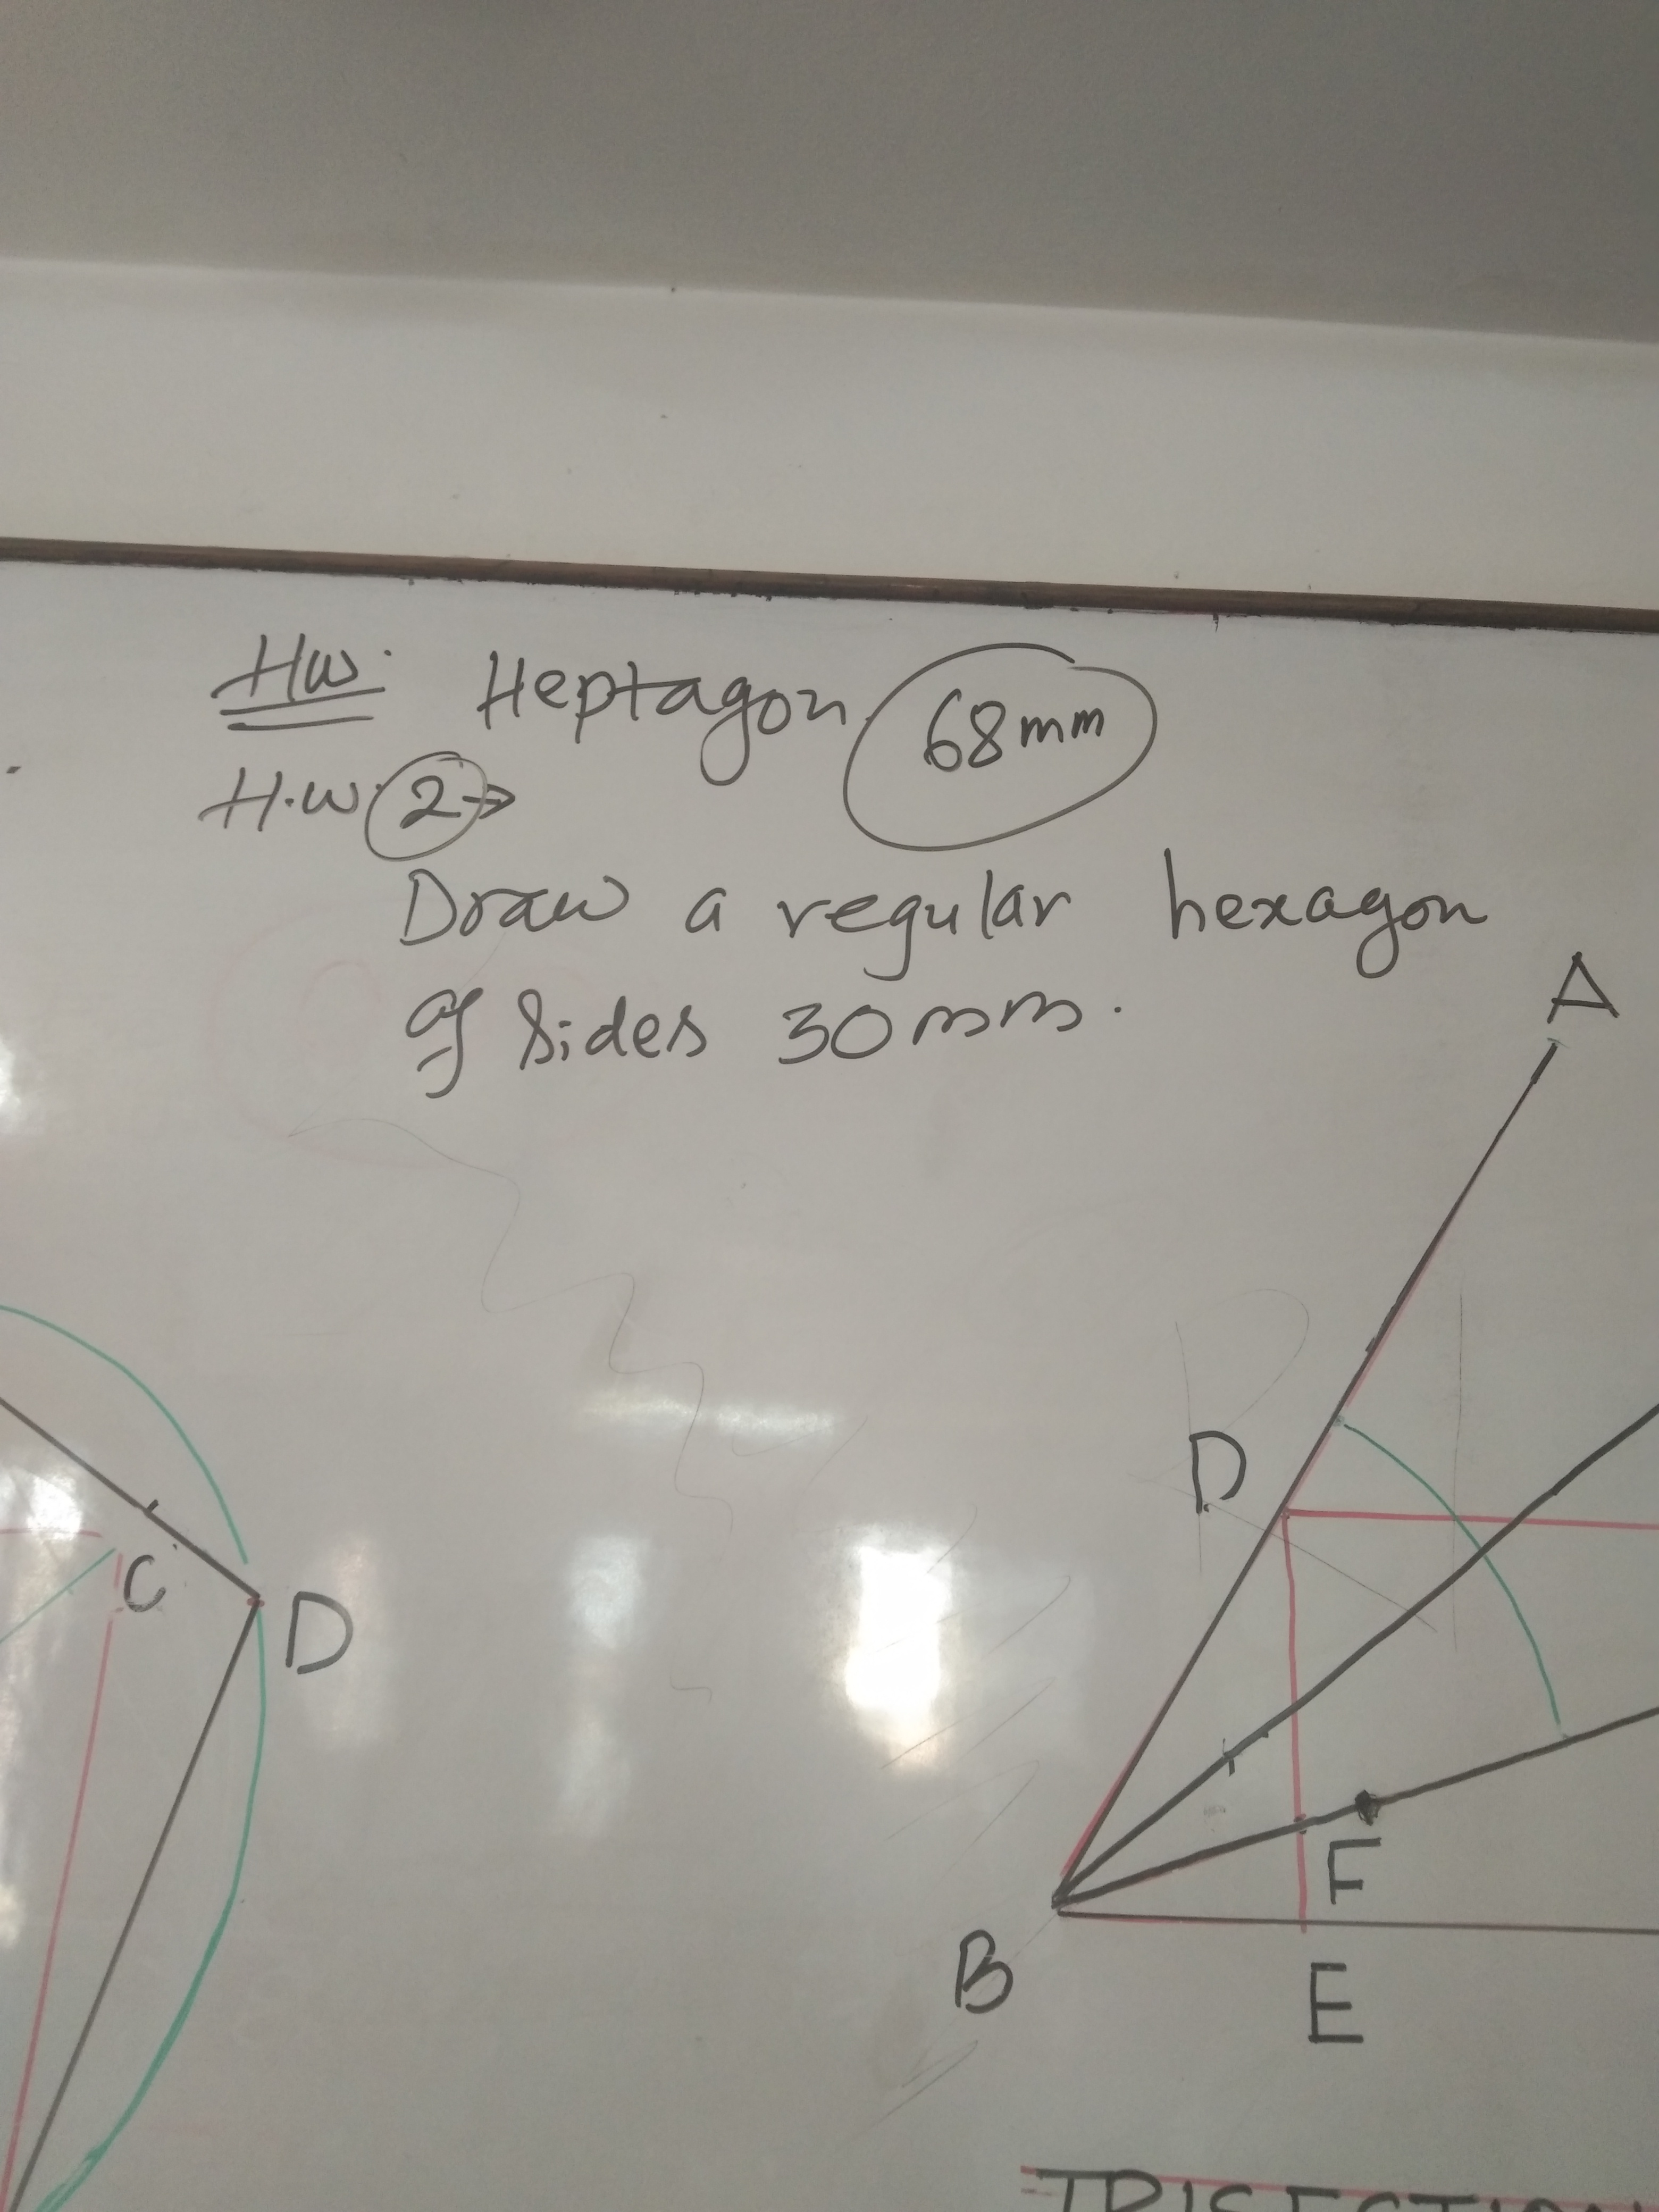 HW. Heptagon 68mm
H.W. 2 →
Draw a regular hexagon
of sides 30mm.
A
D
C
D
F
B
E